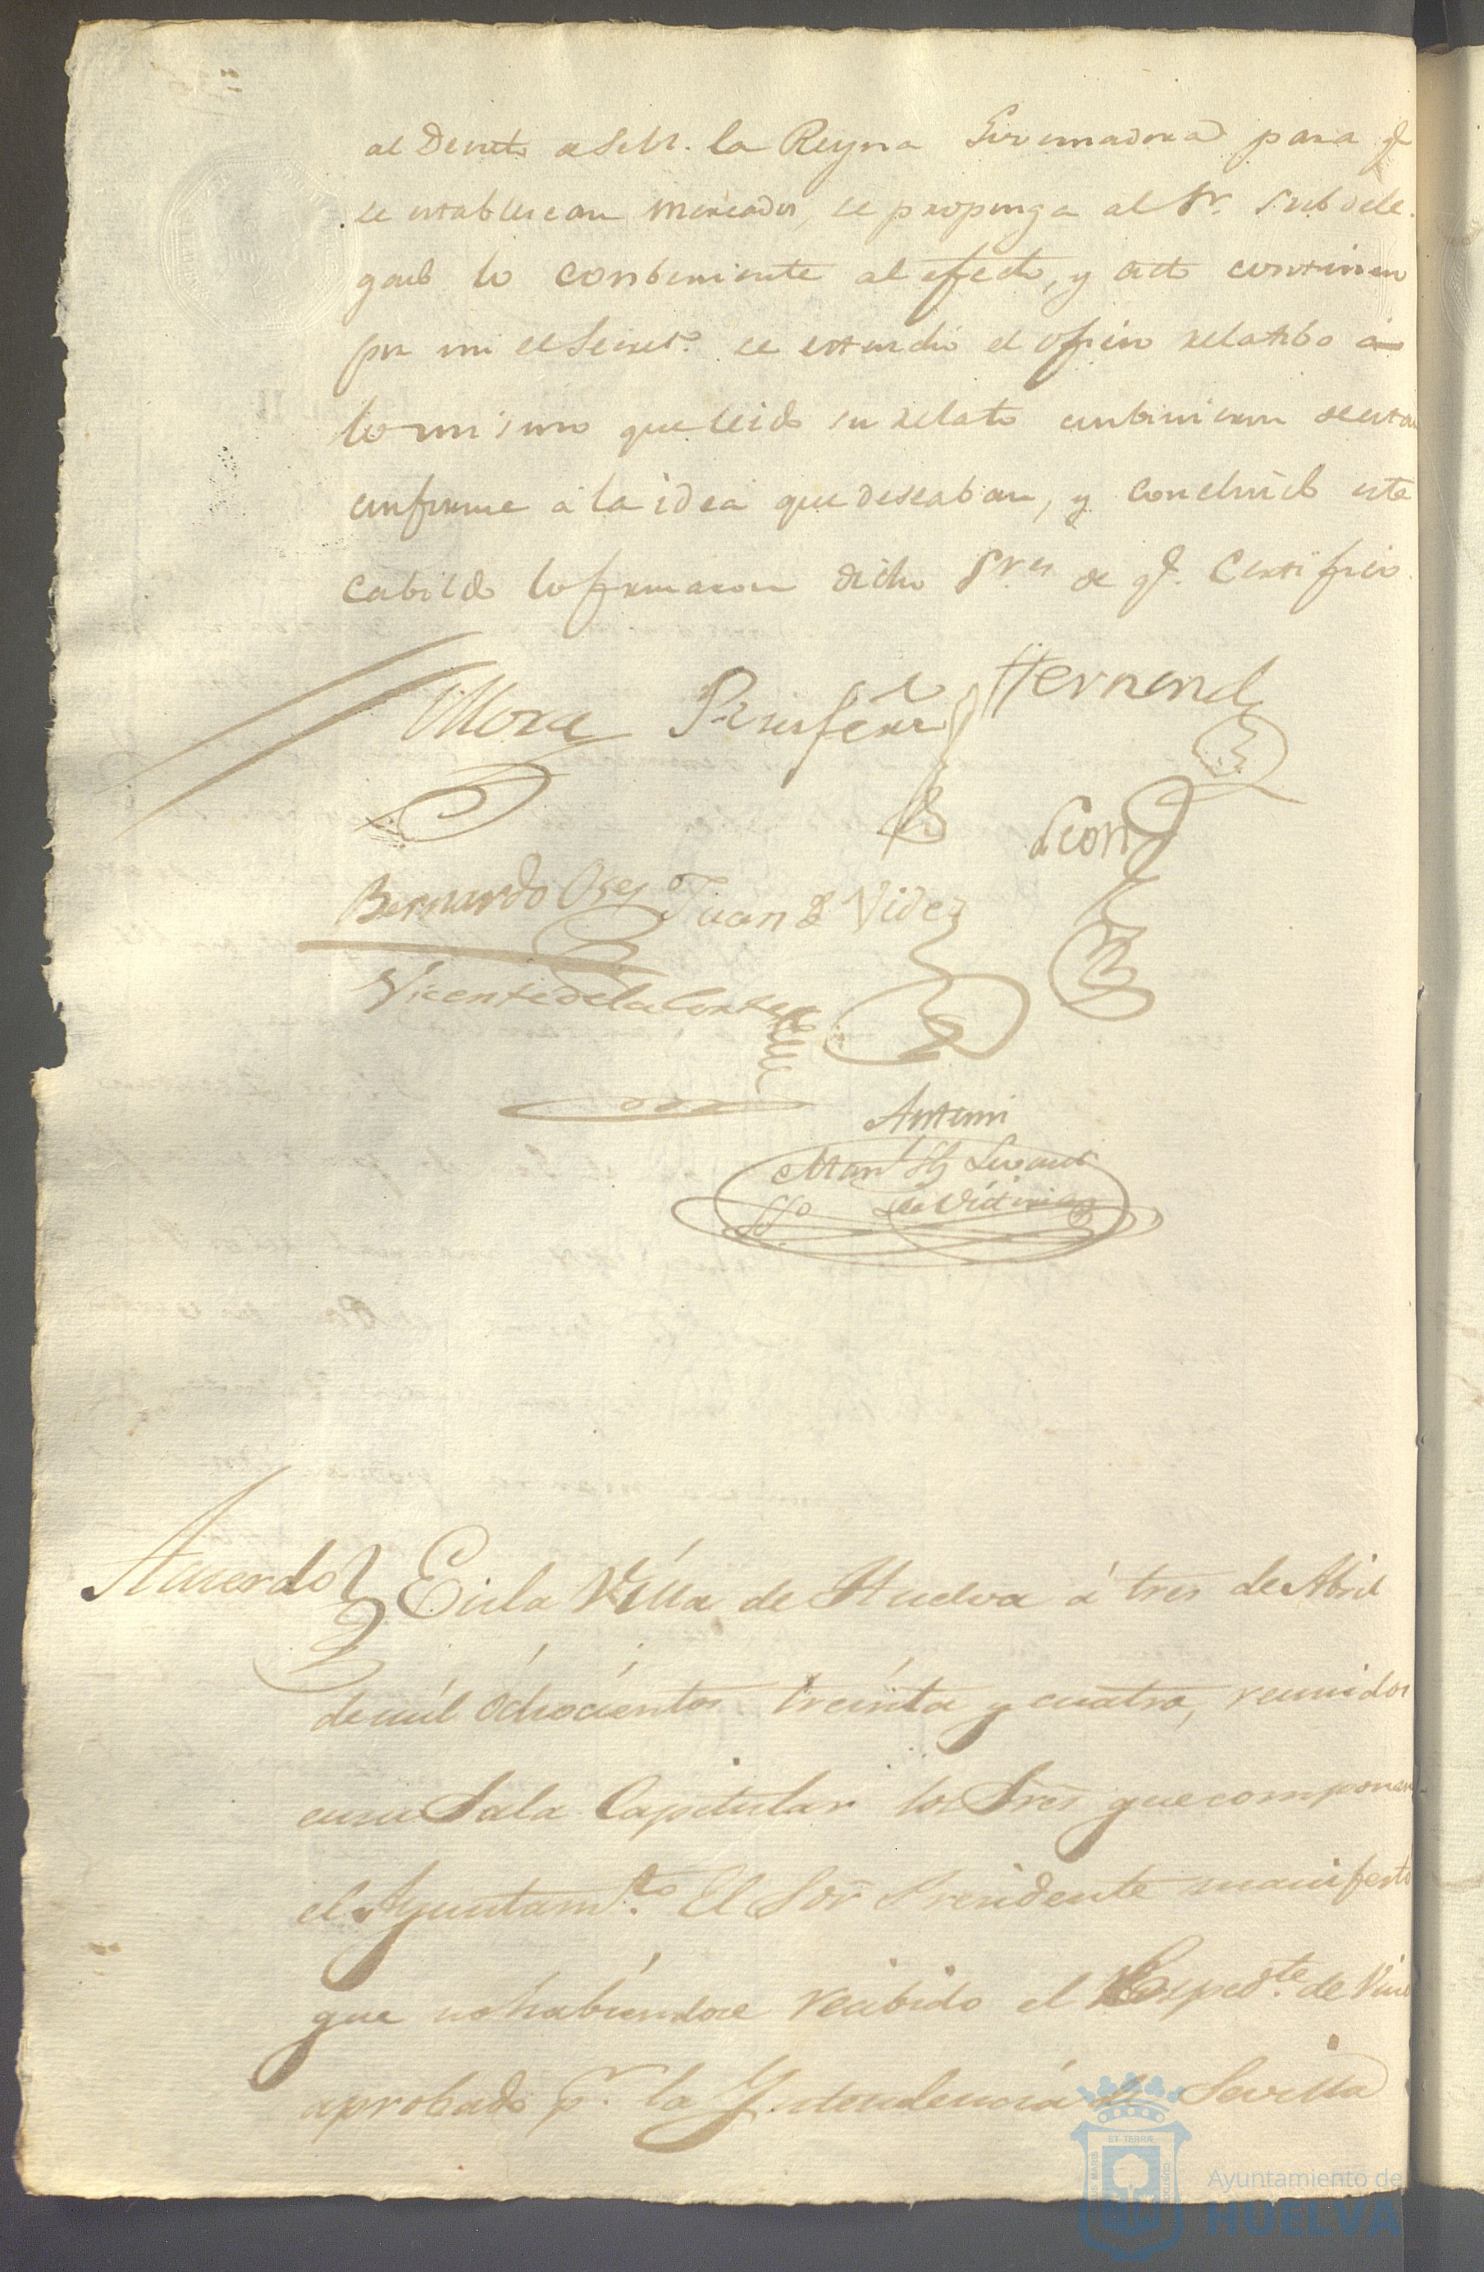 al Decreto de S.M. la Reyna Governadora para q.e
se establescan mercados, se proponga al Sr. Subdele-
gado lo conbeniente al efecto, y acto continuo
por mi el Secret.o se estendio el oficio relatibo a
lo mismo que leido su relato conbinieron de estar
conforme a la idea que deseaban, y concluido este
cabildo lo firmaron dichos Sres. de q.e Certifico
Mora
Hernand.z
Leon
Bernardo
Juan de Videz
Vicente de la Corte
Antemi
Man.l
de Victoria
SSo
Acuerdo En la Villa de Huelva á tres de Abril
de mil ochocientos treinta y cuatro, reunidos
en su Sala Capitular los Sres que componen
el Ayuntam.to El Sor Presidente manifestó
que no habiendose recibido el Exped.te de
aprobado p.r la Yntendencia de Sevilla
MARIS
ET TERRAE
CUSTODIA
Ayuntamiento de
HUELVA